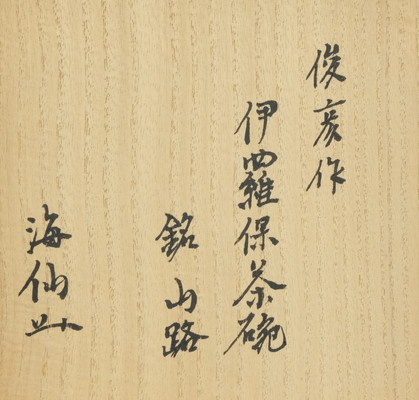 俊彦作
伊羅保茶碗
銘山路
海仙